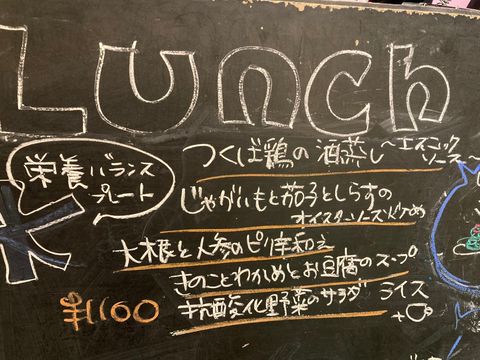 Lunch
栄養バランス
プレート
つくば鶏の酒蒸し ~エスニック
ソース~
じゃがいもと茄子としらすの
オイスターソース炒め
大根と人参のピリ辛和え
きのことわかめとお豆腐のスープ
抗酸化野菜のサラダ ライス
+
¥1100